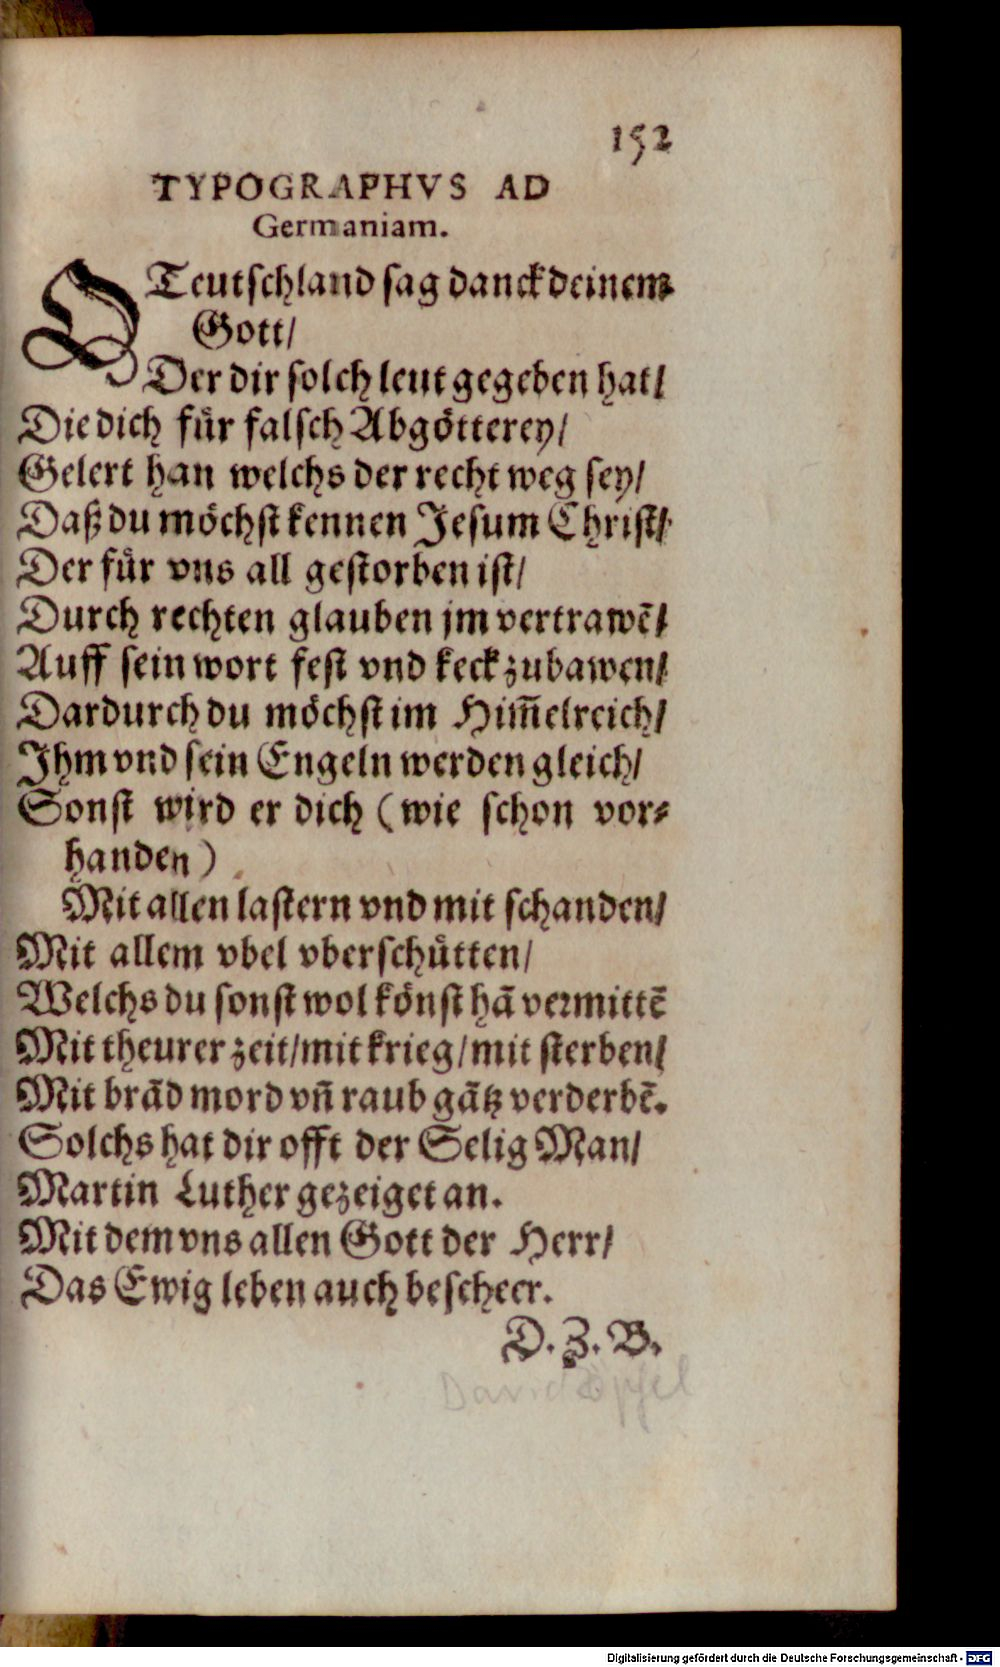 152
TYPOGRAPHVS AD
Germaniam.
O Teutschland sag danck deinem
Gott/
Der dir solch leut gegeben hat/
Die dich fuͤr falsch Abgoͤtterey/
Gelert han welchs der recht weg sey/
Daß du moͤchst kennen Jesum Christ/
Der fuͤr vns all gestorben ist/
Durch rechten glauben jm vertrawẽ/
Auff sein wort fest vnd keck zubawen/
Dardurch du moͤchst im Him̃elreich/
Ihm vnd sein Engeln werden gleich/
Sonst wird er dich (wie schon vor⸗
handen)
Mit allen lastern vnd mit schanden/
Mit allem vbel vberschuͤtten/
Welchs du sonst wol koͤnst hã vermittẽ
Mit theurer zeit/mit krieg/mit sterben/
Mit brãd mord vñ raub gãtz verderbẽ.
Solchs hat dir offt der Selig Man/
Martin Luther gezeiget an.
Mit dem vns allen Gott der Herr/
Das Ewig leben auch bescheer.
D. Z. B.
David
Digitalisierung gefördert durch die Deutsche Forschungsgemeinschaft - DFG